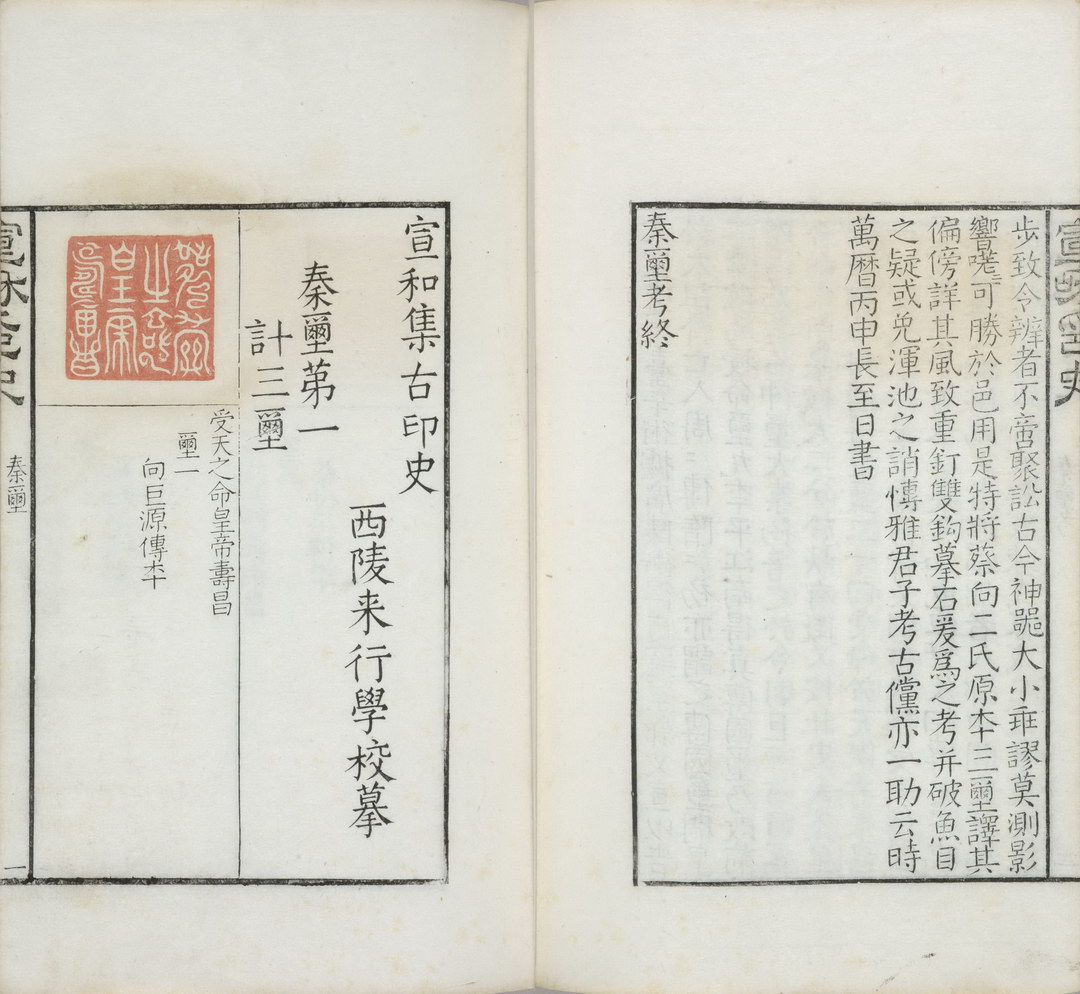 步致令辨者不啻聚訟古今神噐大小乖謬莫測影
響嘵〻可勝於邑用是特將蔡向二氏原本三璽譯其
偏傍詳其風致重釘雙鈎摹石爰爲之考并破魚目
之疑或免渾池之誚愽雅君子考古儻亦一助云時
萬曆丙申長至日書
秦璽考終
宣和集古印史
西陵来行學校摹
秦璽苐一
計三璽
受天之命皇帝壽昌
璽一
向巨源傳本
秦璽
一